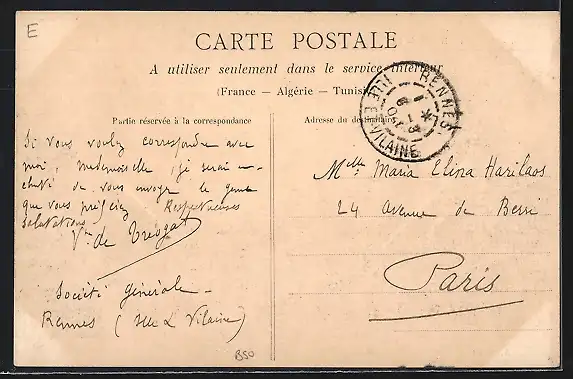 E
CARTE POSTALE
A utiliser seulement dans le service intérieur
(France — Algérie — Tunisie)
Partie réservée à la correspondance
Si vous voulez correspondre avec
moi, mademoiselle, je serai en-
chanté de vous envoyer le genre
que vous préférez Respectueuses
salutations
Vte de Treogat
Société Générale -
Rennes (Ille & Vilaine)
BSO
Adresse du destinataire
RENNES
ILLE-ET-VILAINE
Melle Maria Elina Harilaos
24 Avenue de Berri
Paris